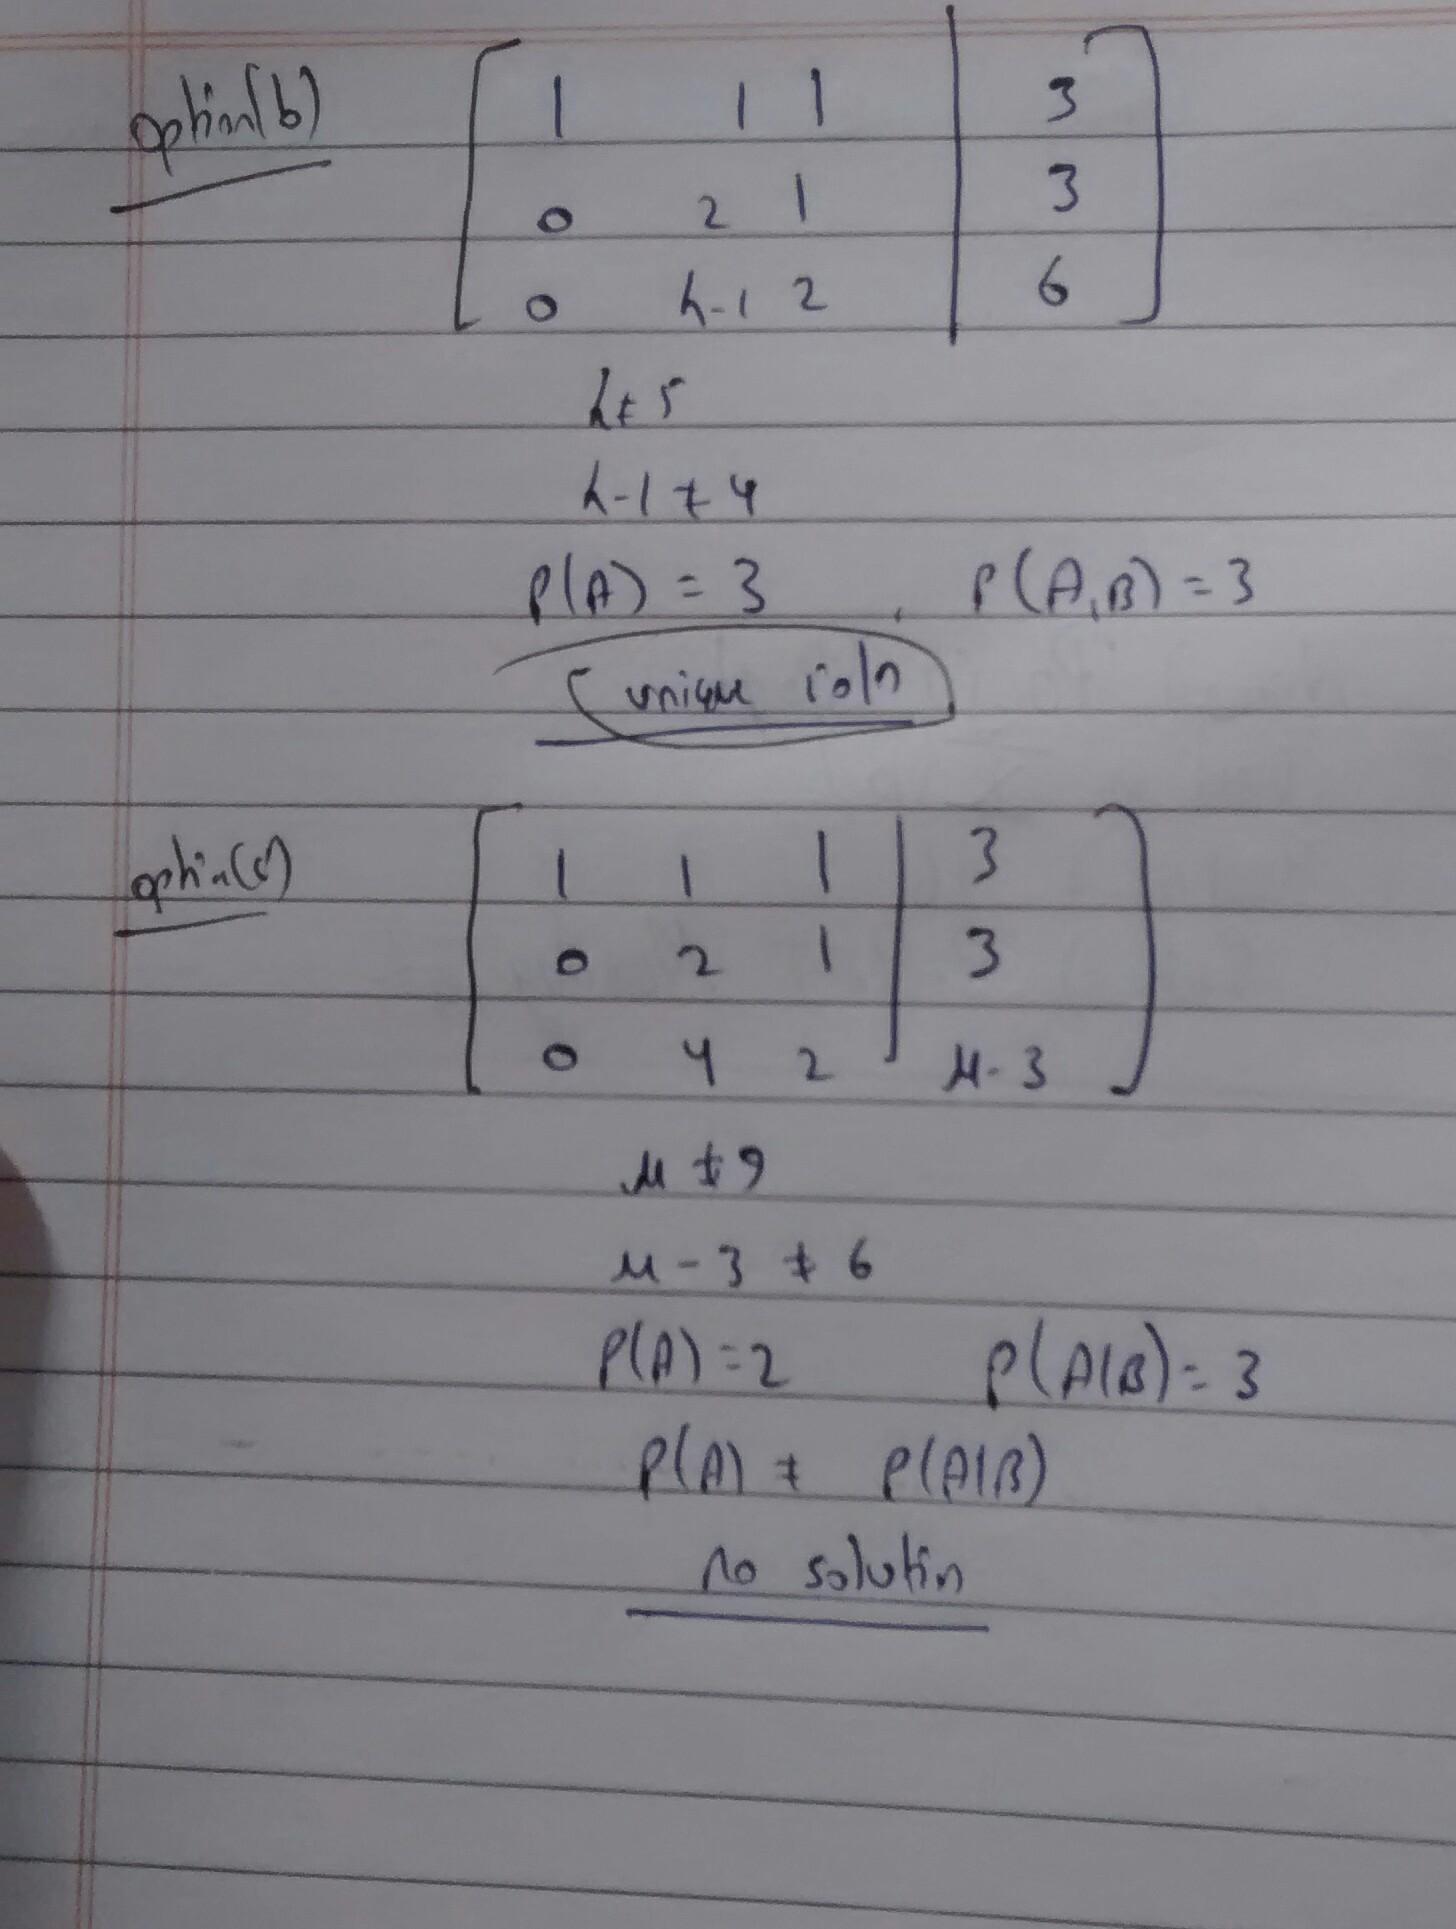 option(b)
1 1 1 | 3
0 2 1 | 3
0 λ-1 2 | 6
λ≠5
λ-1≠4
ρ(A) = 3 , ρ(A,B) = 3
unique soln
option(c)
1 1 1 | 3
0 2 1 | 3
0 4 2 | μ-3
μ≠9
μ-3≠6
ρ(A)=2 ρ(A|B)=3
ρ(A) ≠ ρ(A|B)
no solutin